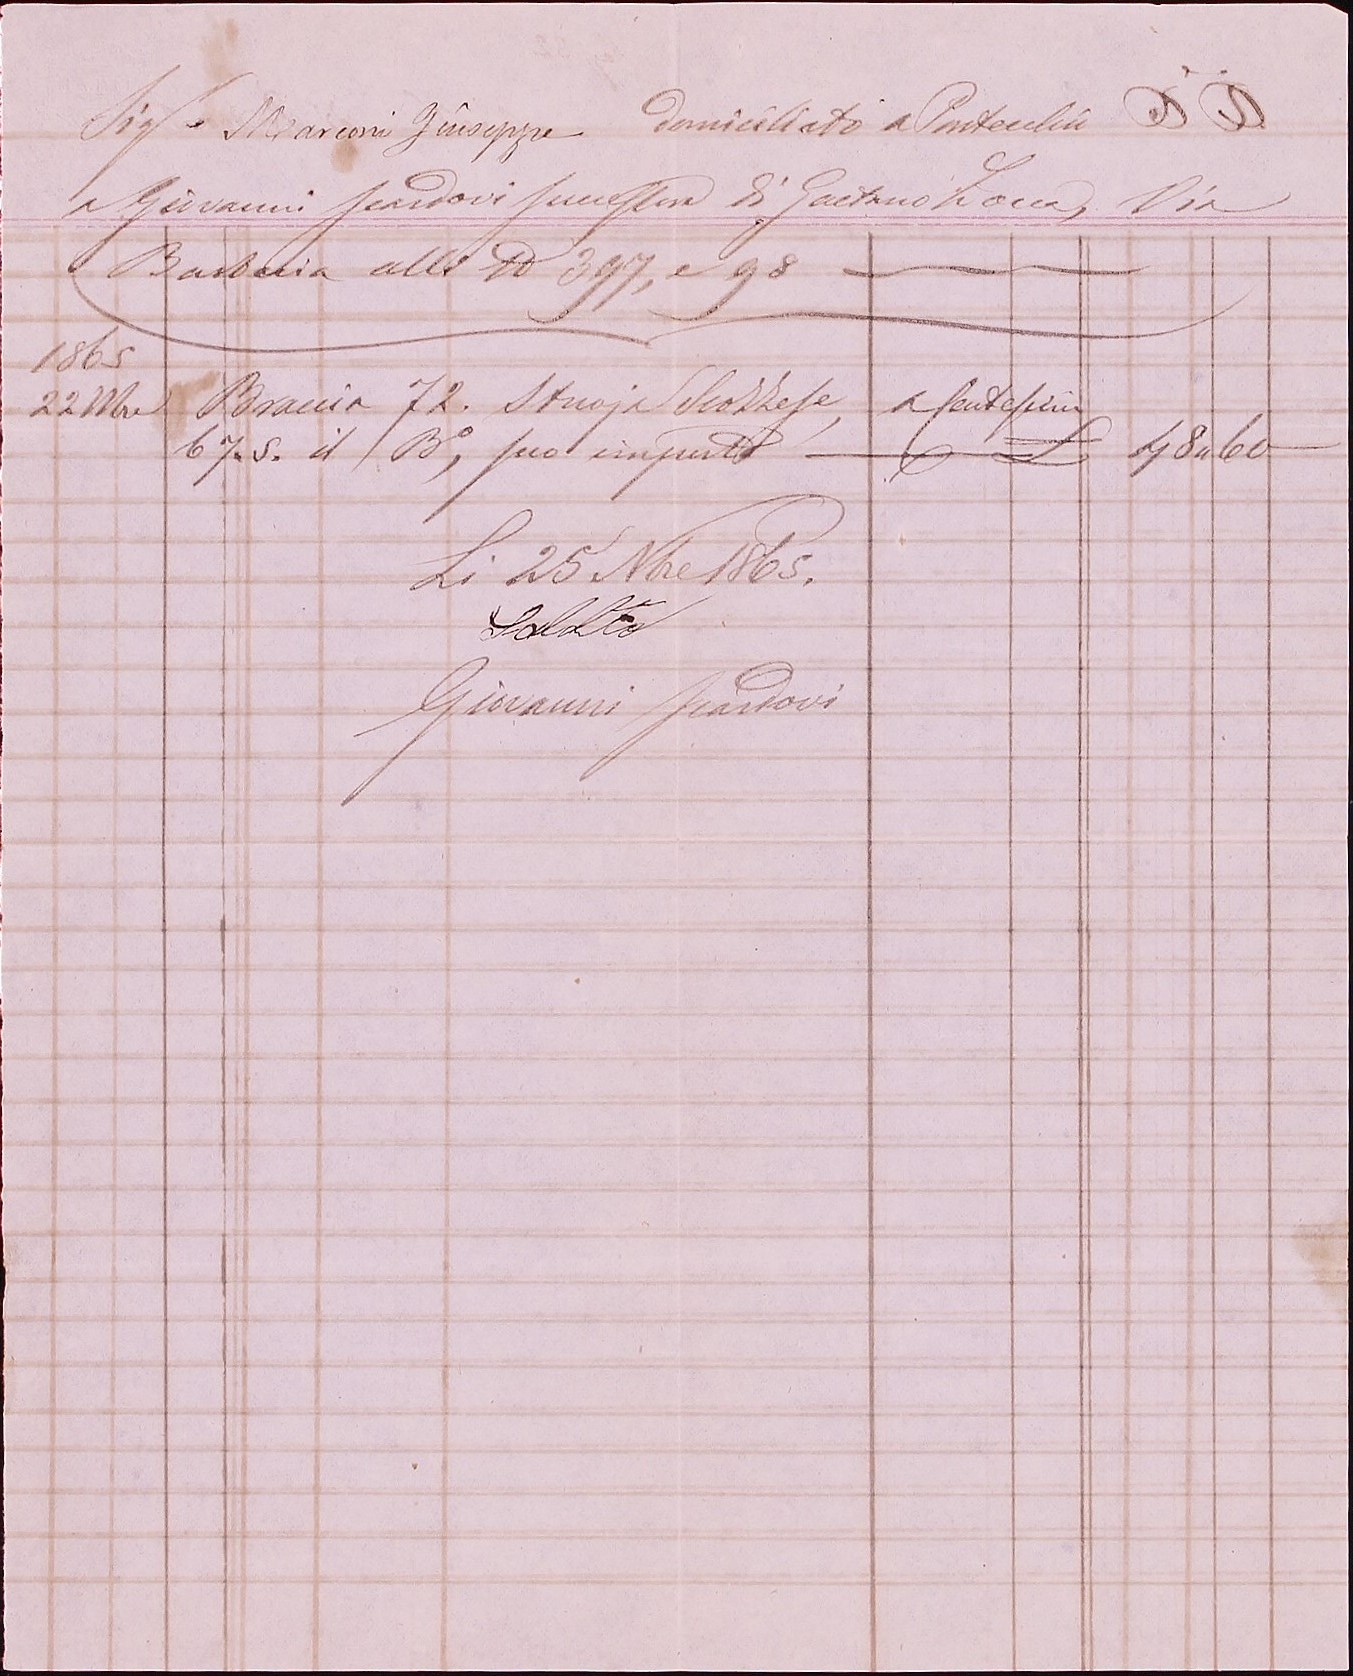 Sigr Marconi Giuseppe domiciliato a Pontecchio D D
a Giovanni Scardovi successore di Gaetano Zocca, Via
Barberia alli N 397, e 98
1865
22 Nbre Braccia 72. Stuoja Scozzese, a Centesimi
67.5. il Bo, suo importo £ 48"60
Li 25 Nbre 1865.
Saldato
Giovanni Scardovi